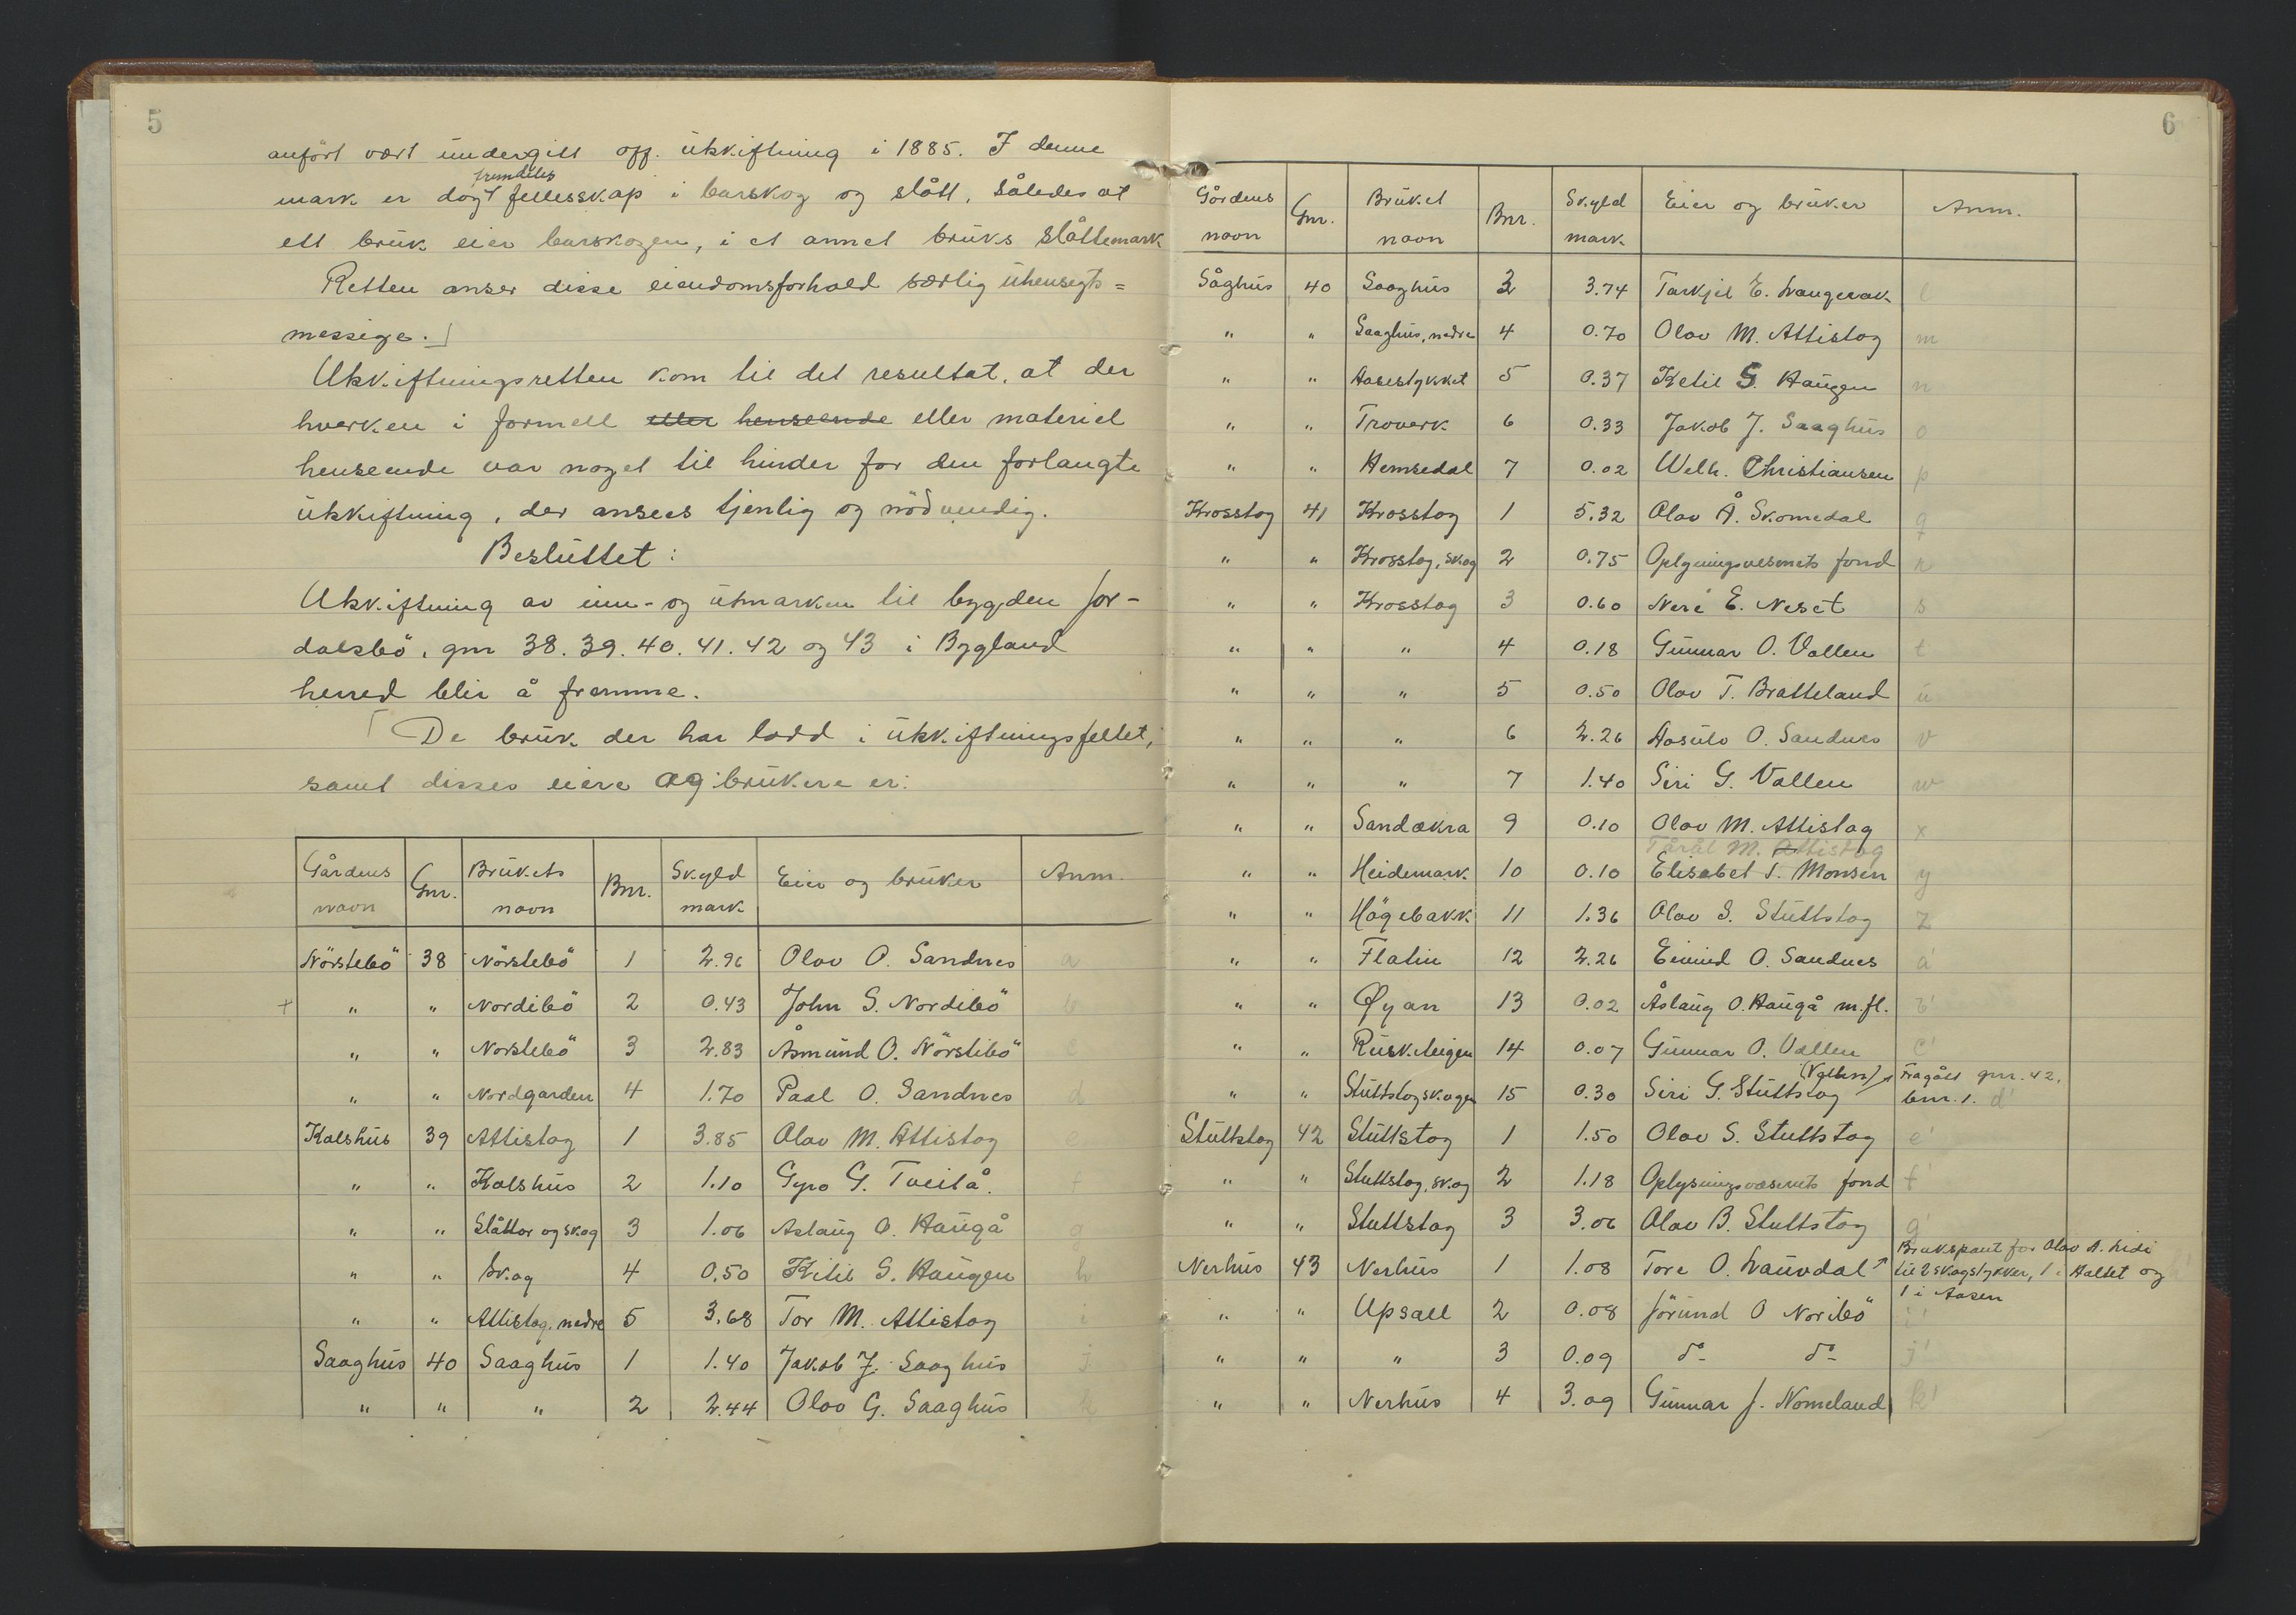 5
anført vært undergitt off. utskiftning i 1885. I denne
fremdeles
mark er dog fellesskap i barskog og slått, således at
ett bruk eier barskogen, i et annet bruks slåttemark
Retten anser disse eiendomsforhold særlig uhensigts=
messige.
Utskiftningsretten kom til det resultat, at der
hverken i formell eller henseende eller materiel
henseende var noget til hinder for den forlangte
utskiftning, der ansees tjenlig og nödvendig.
Besluttet:
Utskiftning av inn- og utmarken til bygden Jor-
dalsbö, gnr 38. 39. 40. 41. 42 og 43 i Bygland
herred blir å fremme.
De bruk der har lodd i utskiftningsfeltet,
samt disses eiere og brukere er:
Gårdens navn | Gnr. | Brukets navn | Bnr. | Skyld mark | Eier og bruker | Anm.
Nörstebö | 38 | Nörstebö | 1 | 2.96 | Olav O. Sandnes | a
+ " | " | Nordibö | 2 | 0.43 | John S. Nordibö | b
" | " | Norstebö | 3 | 2.83 | Åsmund O. Nörstibö | c
" | " | Nordgarden | 4 | 1.70 | Paal O. Sandnes | d
Kalshus | 39 | Attistog | 1 | 3.85 | Olav M. Attistog | e
" | " | Kalshus | 2 | 1.10 | Gyro G. Tveitå. | f
" | " | Slåttor og skog | 3 | 1.06 | Aslaug O. Haugå | g
" | " | Skog | 4 | 0.50 | Ketil S. Haugen | h
" | " | Attistog. nedre | 5 | 3.68 | Tor M. Attistog | i
Saaghus | 40 | Saaghus | 1 | 1.40 | Jakob J. Saaghus | j
" | " | " | 2 | 2.44 | Olav G. Saaghus | k
6
Gårdens navn | Gnr. | Bruket navn | Bnr. | Skyld mark | Eier og bruker | Anm.
Såghus | 40 | Saaghus | 3 | 3.74 | Tarkjel E. Langerak | l
" | " | Saaghus, nedre | 4 | 0.70 | Olav M. Attistog | m
" | " | Aasestykket | 5 | 0.37 | Ketil S. Haugen | n
" | " | Troverk | 6 | 0.33 | Jakob J. Saaghus | o
" | " | Hemsedal | 7 | 0.02 | Welh. Christiansen | p
Krosstog | 41 | Krosstog | 1 | 5.32 | Olav Å. Skomedal | q
" | " | Krosstog, skog | 2 | 0.75 | Oplysningsvesenets fond | r
" | " | Krosstog | 3 | 0.60 | Neri E. Neset | s
" | " | " | 4 | 0.18 | Gunnar O. Vallen | t
" | " | " | 5 | 0.50 | Olav T. Bratteland | u
" | " | " | 6 | 2.26 | Aasulv O. Sandnes | v
" | " | " | 7 | 1.40 | Siri G. Vallen | w
" | " | Sandakra | 9 | 0.10 | Olav M. Attistog | x
Tarål M. Attistog
" | " | Heidemark | 10 | 0.10 | Elisabet T. Monsen | y
" | " | Högebakk | 11 | 1.36 | Olav S. Stuttstog | z
" | " | Flatin | 12 | 2.26 | Eivind O. Sandnes | a'
" | " | Øyan | 13 | 0.02 | Åslaug O. Haugå m.fl. | b'
" | " | 14 | 0.07 | Gunnar O. Vallen | c'
(Vallen)
" | " | Stuttstogskogen | 15 | 0.30 | Siri G. Stuttstog | Fragått gnr. 42,
bnr. 1. d'
Stuttstog | 42 | Stuttstog | 1 | 1.50 | Olav S. Stuttstog | e'
" | " | Stuttstog, skog | 2 | 1.18 | Oplysningsvæsenets fond | f'
" | " | Stuttstog | 3 | 3.06 | Olav B. Stuttstog | g'
Nerhus | 43 | Nerhus | 1 | 1.08 | Tore O. Lauvdal | Brukspant for Olav A. Lidi
til 2 skogstykker, 1 i Haltet og
1 i Aasen
" | " | Upsall | 2 | 0.08 | Jörund O Noribö | i'
" | " | " | 3 | 0.09 | do do | j'
" | " | Nerhus | 4 | 3.09 | Gunnar J. Nomeland | k'